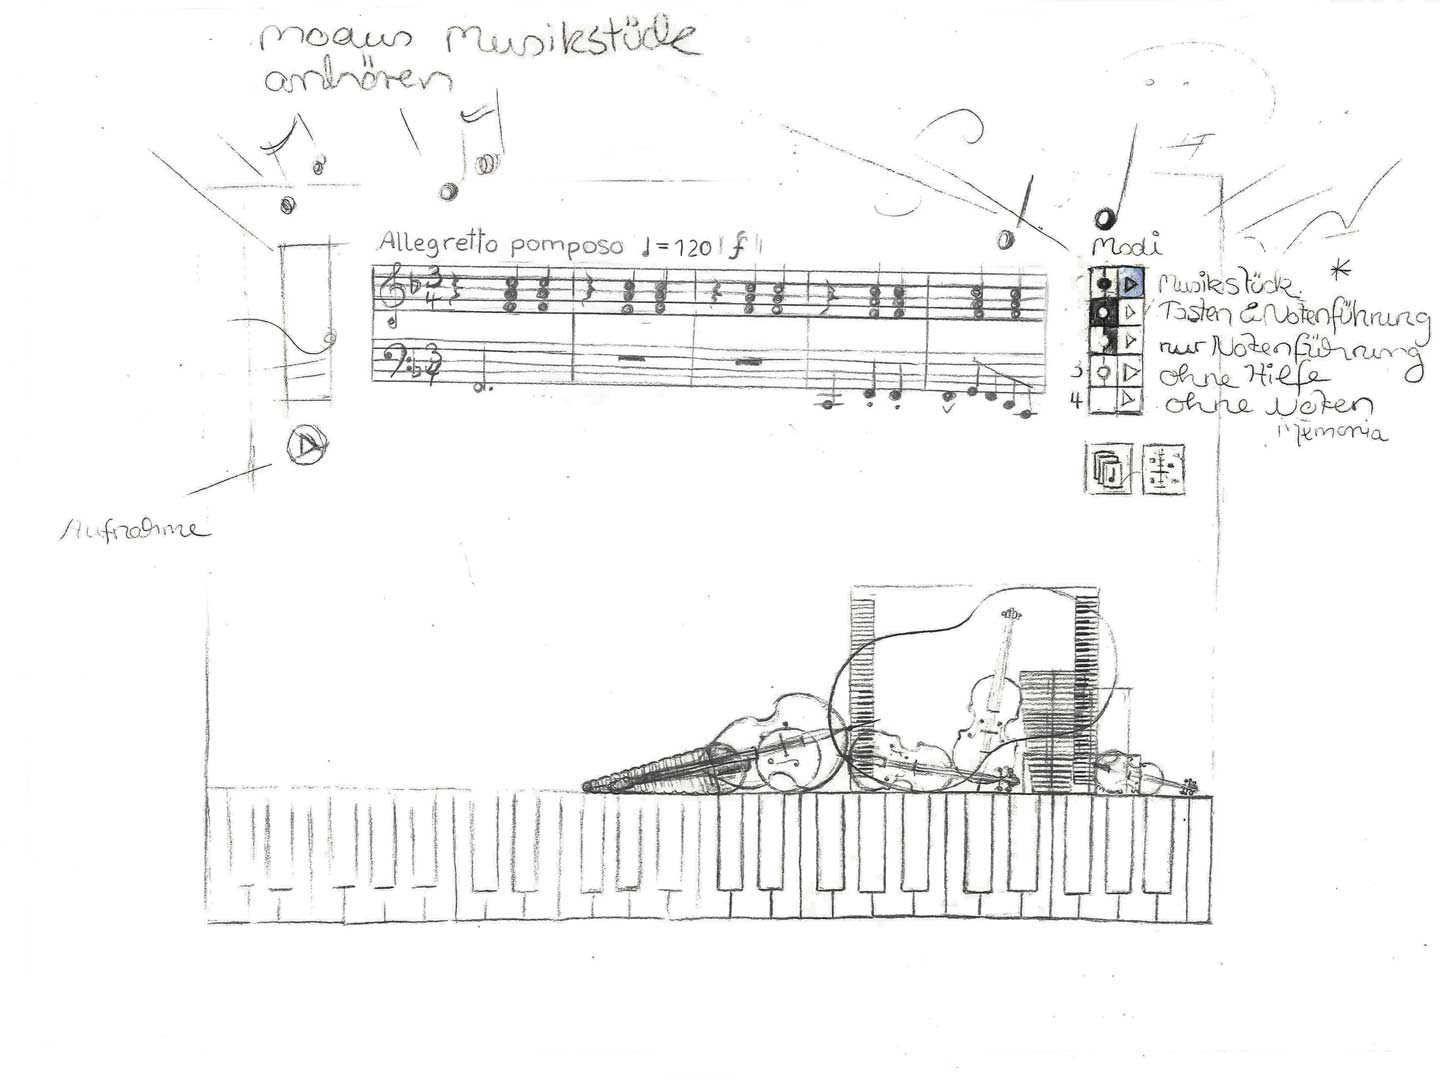 Modus Musikstücke
anhören
Allegretto pomposo ♩=120 f
3
4
3
4
Modi
Musikstück *
Tasten & Notenführung
nur Notenführung
3 ohne Hilfe
4 ohne Noten
Memoria
Aufnahme